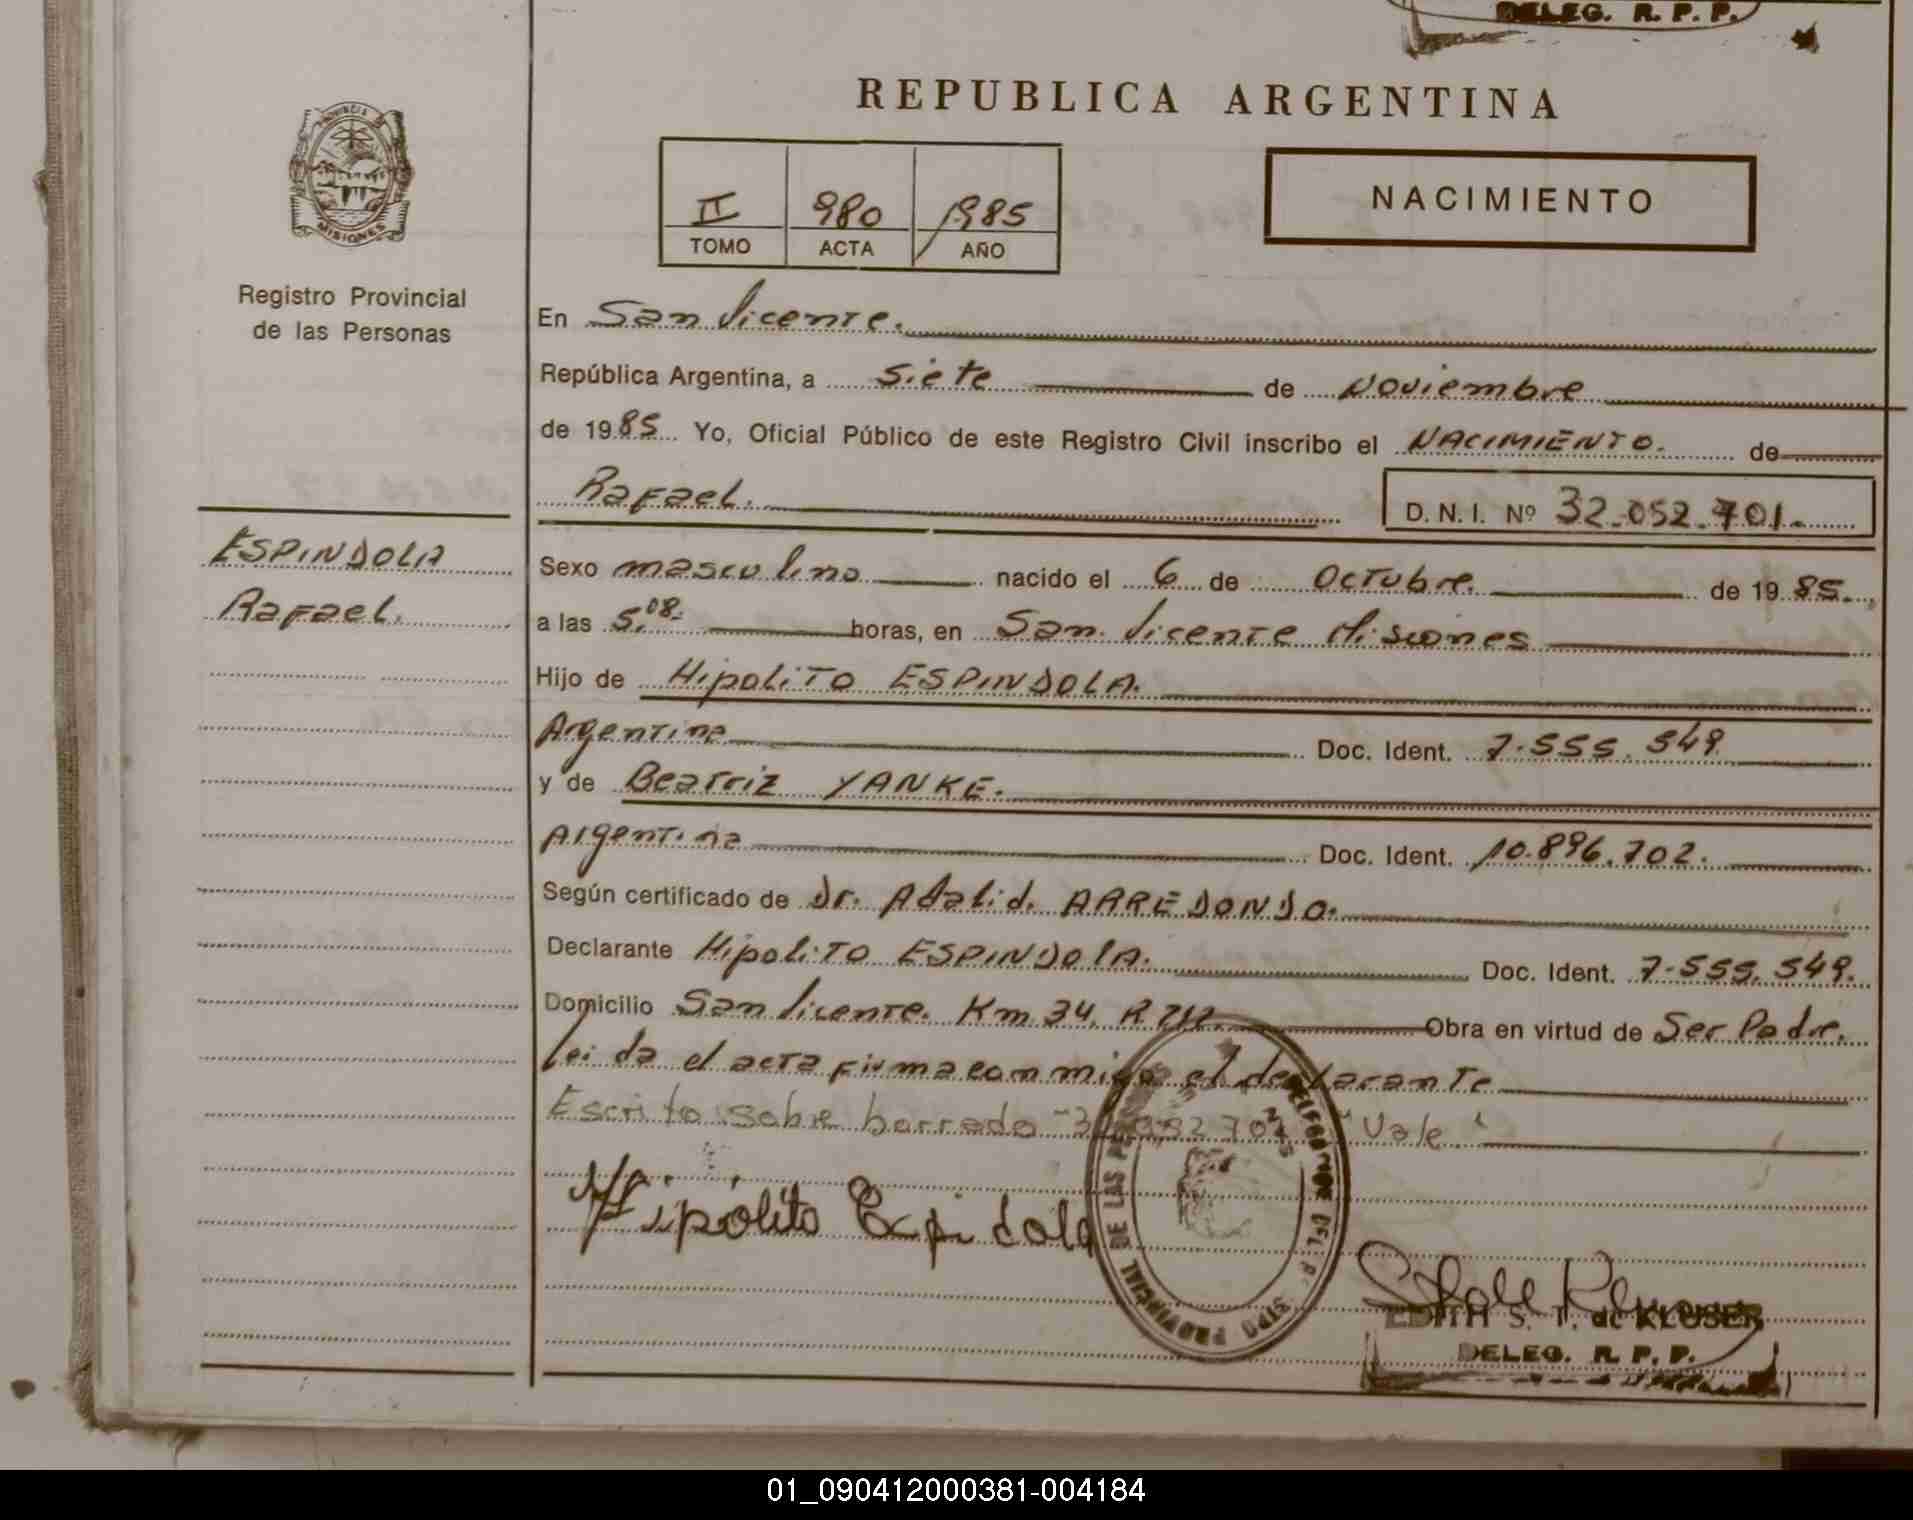 DELEG. R. P. P.
REPUBLICA ARGENTINA
PROVINCIA DE
MISIONES
II 980 1985
TOMO ACTA AÑO
NACIMIENTO
Registro Provincial
de las Personas
ESPINDOLA
Rafael.
En San Vicente.
República Argentina, a siete de Noviembre
de 1985 Yo, Oficial Público de este Registro Civil inscribo el NACIMIENTO. de
Rafael. D. N. I. Nº 32.052.701.
Sexo masculino nacido el 6 de Octubre. de 1985.
a las 5,08. horas, en San Vicente Misiones
Hijo de Hipolito ESPINDOLA.
Argentina Doc. Ident. 7.555.549.
y de Beatriz YANKE.
Argentina Doc. Ident. 10.896.702.
Según certificado de Dr. Adalid. ARREDONDO.
Declarante Hipolito ESPINDOLA. Doc. Ident. 7.555.549.
Domicilio San Vicente. Km 34. R 212. Obra en virtud de Ser Padre.
leida el acta firma conmigo el declarante
Escrito sobre borrado "32.052.701" Vale.
Hipólito Expidola
PROVINCIAL DE LAS PERSONAS
EDITH S. T. de KLUSER
DELEG. R. P. P.
01_090412000381-004184